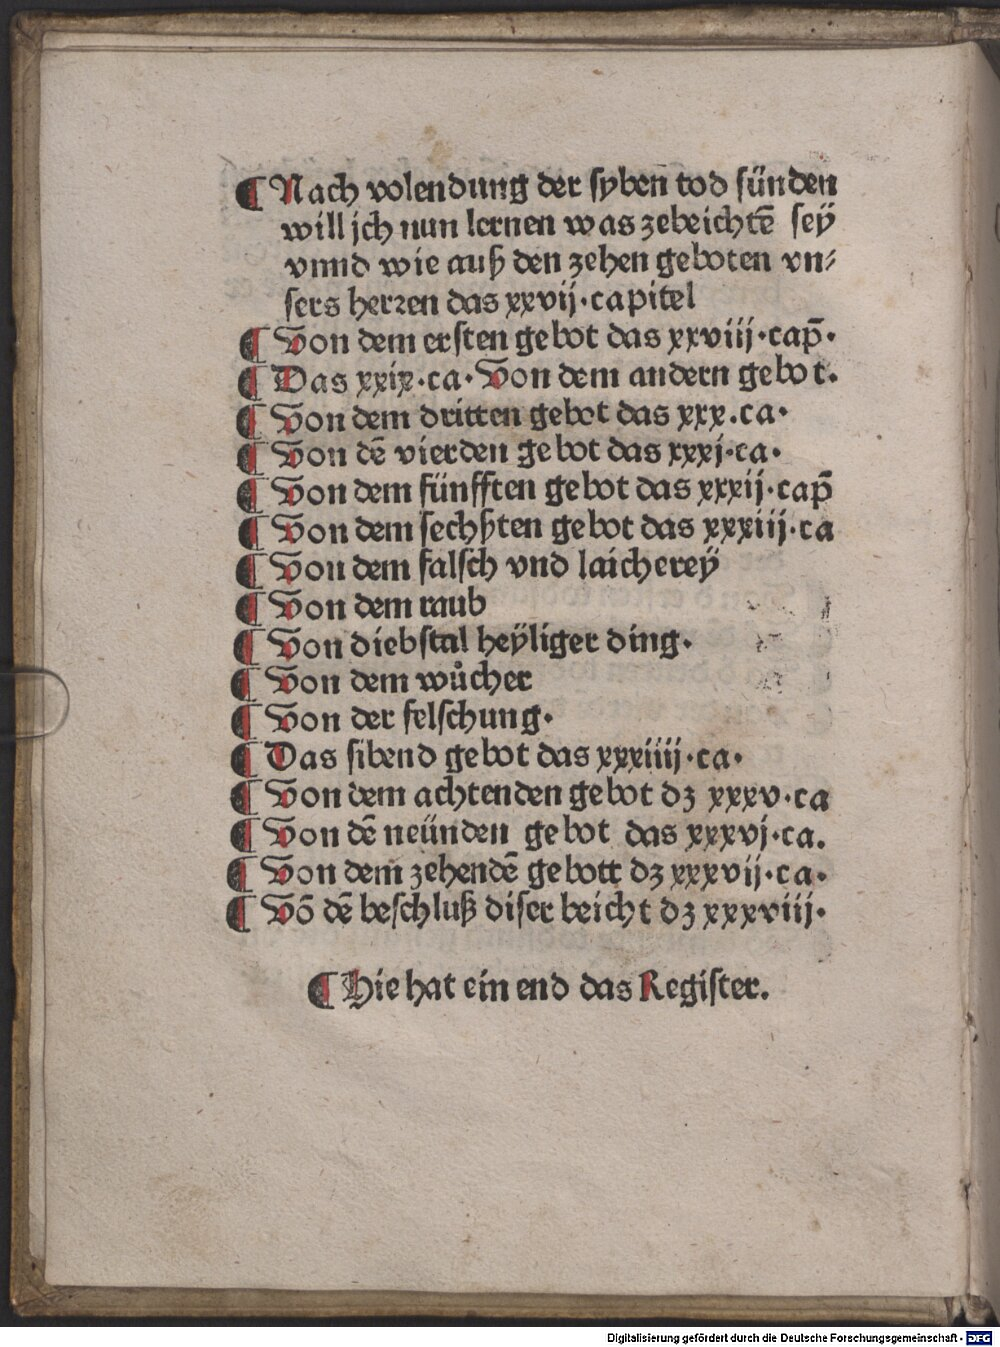 ¶ Nach volendung der syben tod sünden
will jch nun lernen was zebeichtē sey̋
vnnd wie auß den zehen geboten vn⸗
sers herren das xxvij·capitel
¶ Von dem ersten gebot das xxviij·cap̄·
¶ Das xxix·ca·Von dem andern gebot.
¶ Von dem dritten gebot das xxx.ca·
¶ Von dē vierden gebot das xxxj·ca·
¶ Von dem fünfften gebot das xxxij·cap̄
¶ Von dem sechßten gebot das xxxiij·ca
¶ Von dem falsch vnd laicherey̋
¶ Von dem raub
¶ Von diebstal hey̋liger ding·
¶ Von dem wůcher
¶ Von der felschung·
¶ Das sibend gebot das xxxiiij·ca·
¶ Von dem achtenden gebot dz xxxv·ca
¶ Von dē neünden gebot das xxxvj·ca.
¶ Von dem zehendē gebott dz xxxvij·ca·
¶ Vō dē beschluß diser beicht dz xxxviij·
¶ Hie hat ein end das Register.
Digitalisierung gefördert durch die Deutsche Forschungsgemeinschaft - DFG